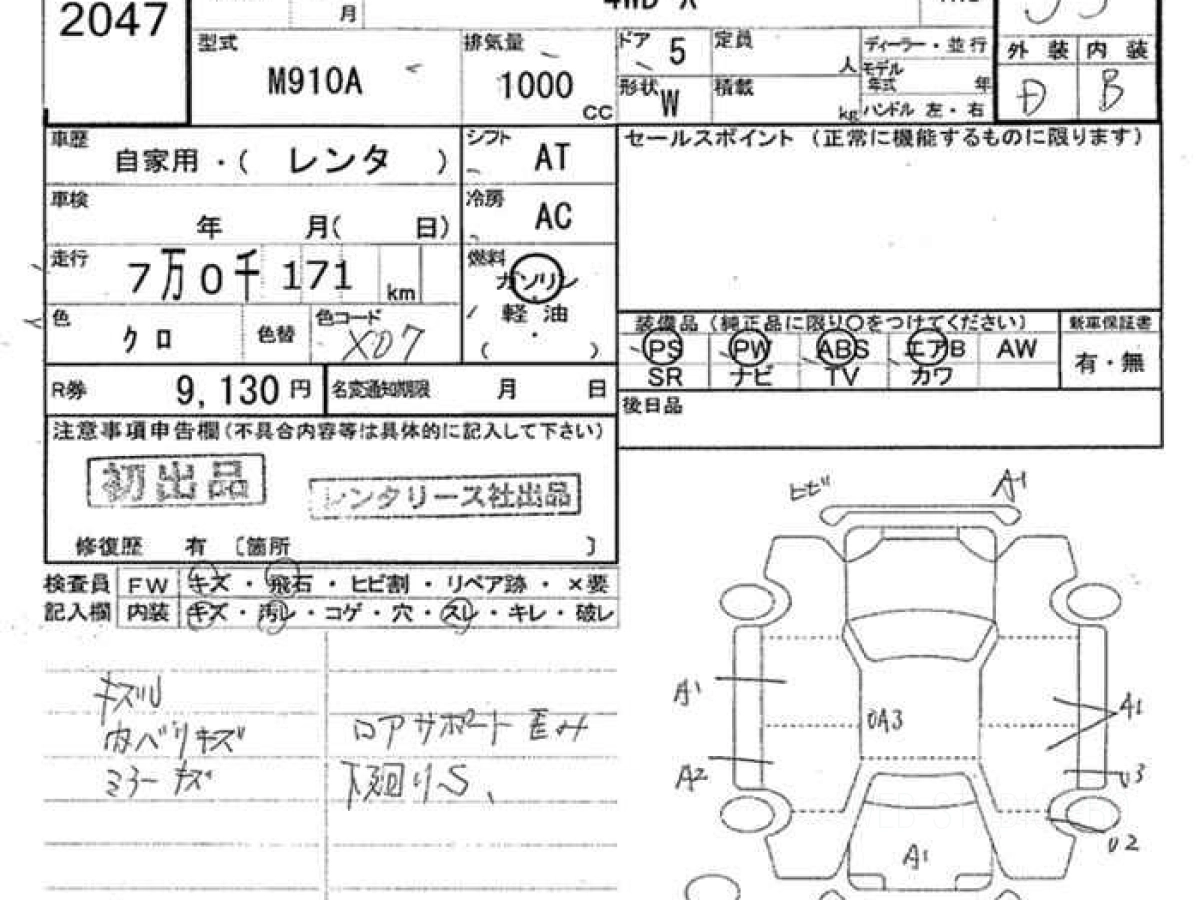 2047
月
型式
M910A
排気量
1000
CC
ドア 5
形状 W
定員
人
積載
kg
ディーラー・並行
モデル年式 年
ハンドル 左・右
外装 内装
D B
車歴
自家用・( レンタ )
シフト
AT
セールスポイント (正常に機能するものに限ります)
車検
年 月( 日)
冷房
AC
走行
7万0千171 km
燃料
ガソリン
軽・油
( ・ )
色
クロ
色替
色コード
X07
装備品(純正品に限り○をつけてください)
新車保証書
PS PW ABS エアB AW
SR ナビ TV カワ
有・無
R券
9,130円
名変通知期限 月 日
後日品
注意事項申告欄(不具合内容等は具体的に記入して下さい)
初出品
レンタリース社出品
修復歴 有 〔箇所 〕
検査員 FW キズ・飛石・ヒビ割・リペア跡・×要
記入欄 内装 キズ・汚レ・コゲ・穴・スレ・キレ・破レ
キズU
内ベリキズ
ミラーキズ
ロアサポート歪ミ
下廻りS、
ヒビ
A1
A1
A2
A1
U3
U2
A1